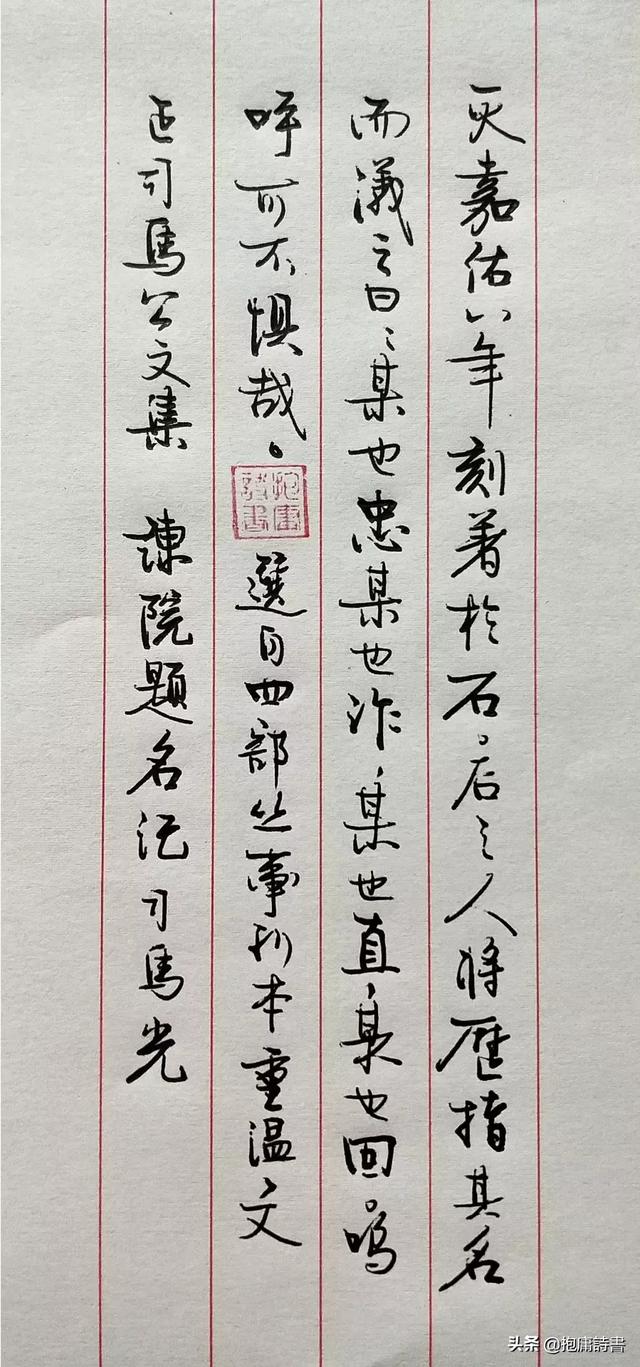 灭嘉佑八年刻著於石。后之人將歷指其名
而議之曰：某也忠某也詐，某也直，某也回。嗚
呼可不惧哉。
抱庸詩書
選自四部丛刊本重温文
正司馬公文集 諫院題名记司馬光
头条 @抱庸詩書